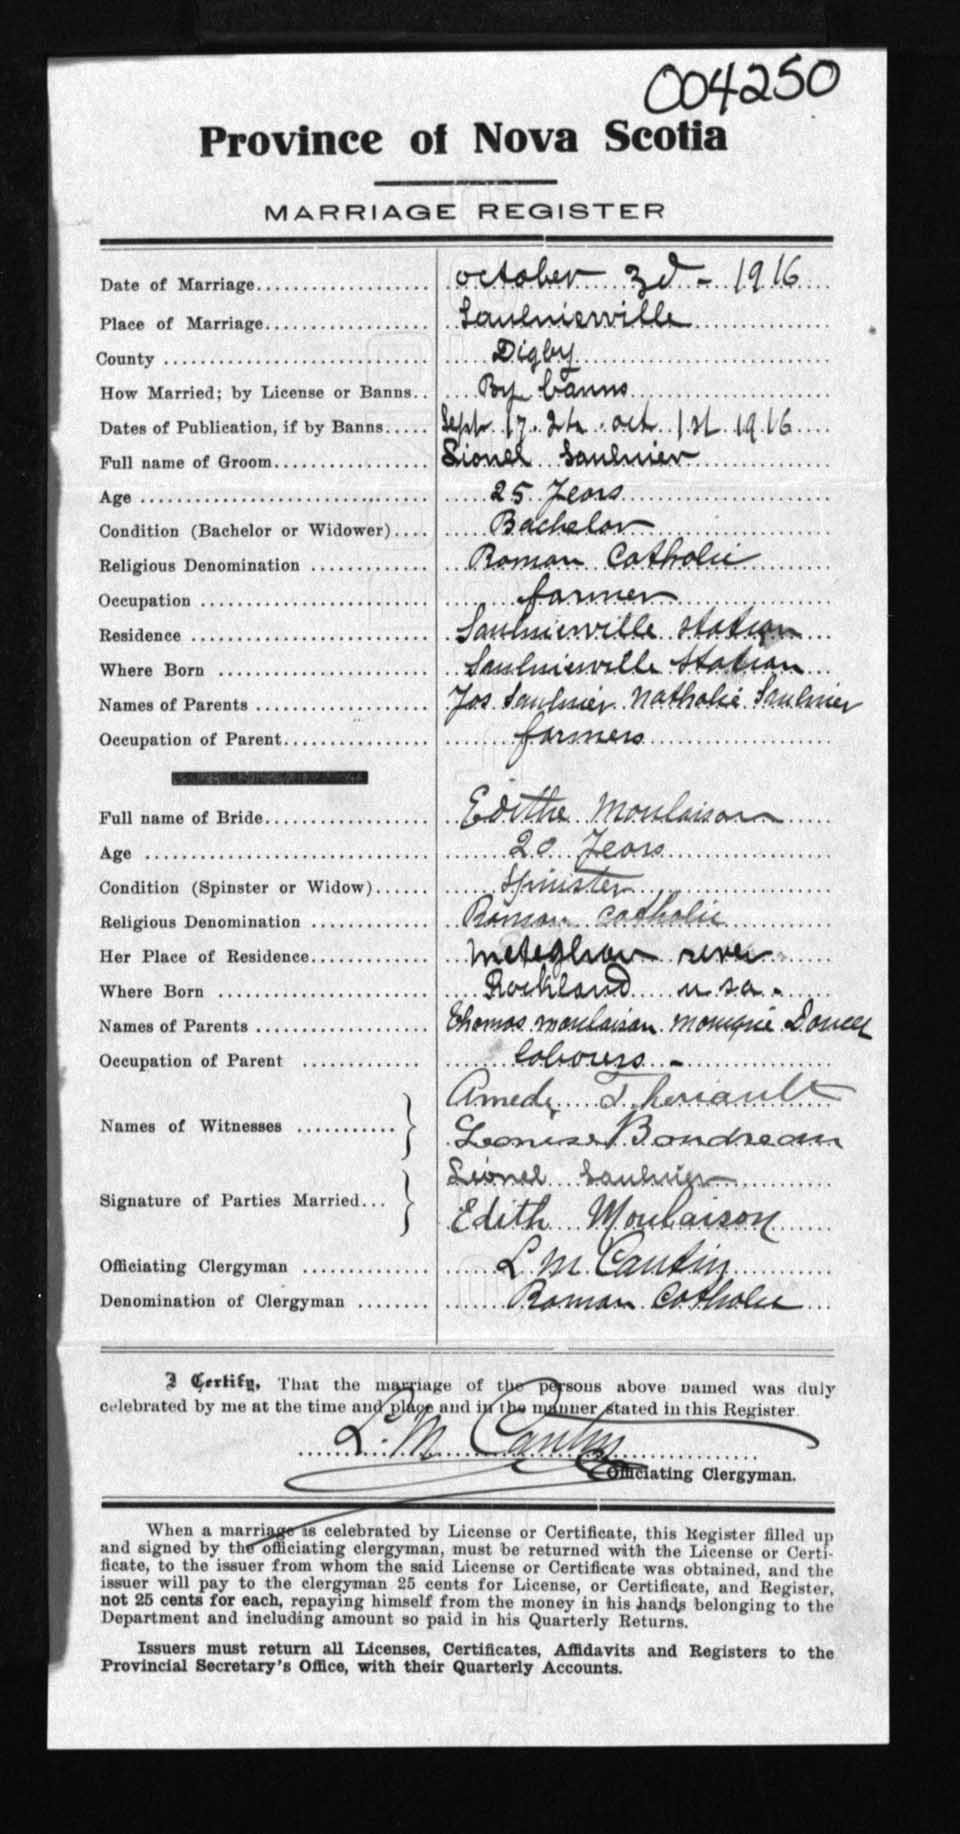 004250
Province of Nova Scotia
MARRIAGE REGISTER
Date of Marriage.................. october 3d - 1916
Place of Marriage................. Saulnierville
County ........................... Digby
How Married; by License or Banns.. By banns
Dates of Publication, if by Banns..... Sept 17. 24. oct 1st 1916
Full name of Groom................ Lionel Saulnier
Age .............................. 25 Years
Condition (Bachelor or Widower).... Bachelor
Religious Denomination ........... Roman Catholic
Occupation ....................... farmer
Residence ........................ Saulnierville Station
Where Born ....................... Saulnierville Station
Names of Parents ................. Jos Saulnier Nathalie Saulnier
Occupation of Parent.............. farmers
Full name of Bride................ Edithe Moulaison
Age .............................. 20 Years
Condition (Spinster or Widow)...... Spinster
Religious Denomination ........... Roman Catholic
Her Place of Residence............ Meteghan river
Where Born ....................... Rockland u s a.
Names of Parents ................. Thomas moulaison monique Doucet
Occupation of Parent ............. labourers -
Names of Witnesses ........... } Amede Theriault
Boudreau
Signature of Parties Married... } Lionel Saulnier
Edith Moulaison
Officiating Clergyman ............ L M Cautin
Denomination of Clergyman ........ Roman Catholic
I Certify, That the marriage of the persons above named was duly
celebrated by me at the time and place and in the manner stated in this Register.
L. M Cautin
Officiating Clergyman.
When a marriage is celebrated by License or Certificate, this Register filled up
and signed by the officiating clergyman, must be returned with the License or Certi-
ficate, to the issuer from whom the said License or Certificate was obtained, and the
issuer will pay to the clergyman 25 cents for License, or Certificate, and Register,
not 25 cents for each, repaying himself from the money in his hands belonging to the
Department and including amount so paid in his Quarterly Returns.
Issuers must return all Licenses, Certificates, Affidavits and Registers to the
Provincial Secretary's Office, with their Quarterly Accounts.